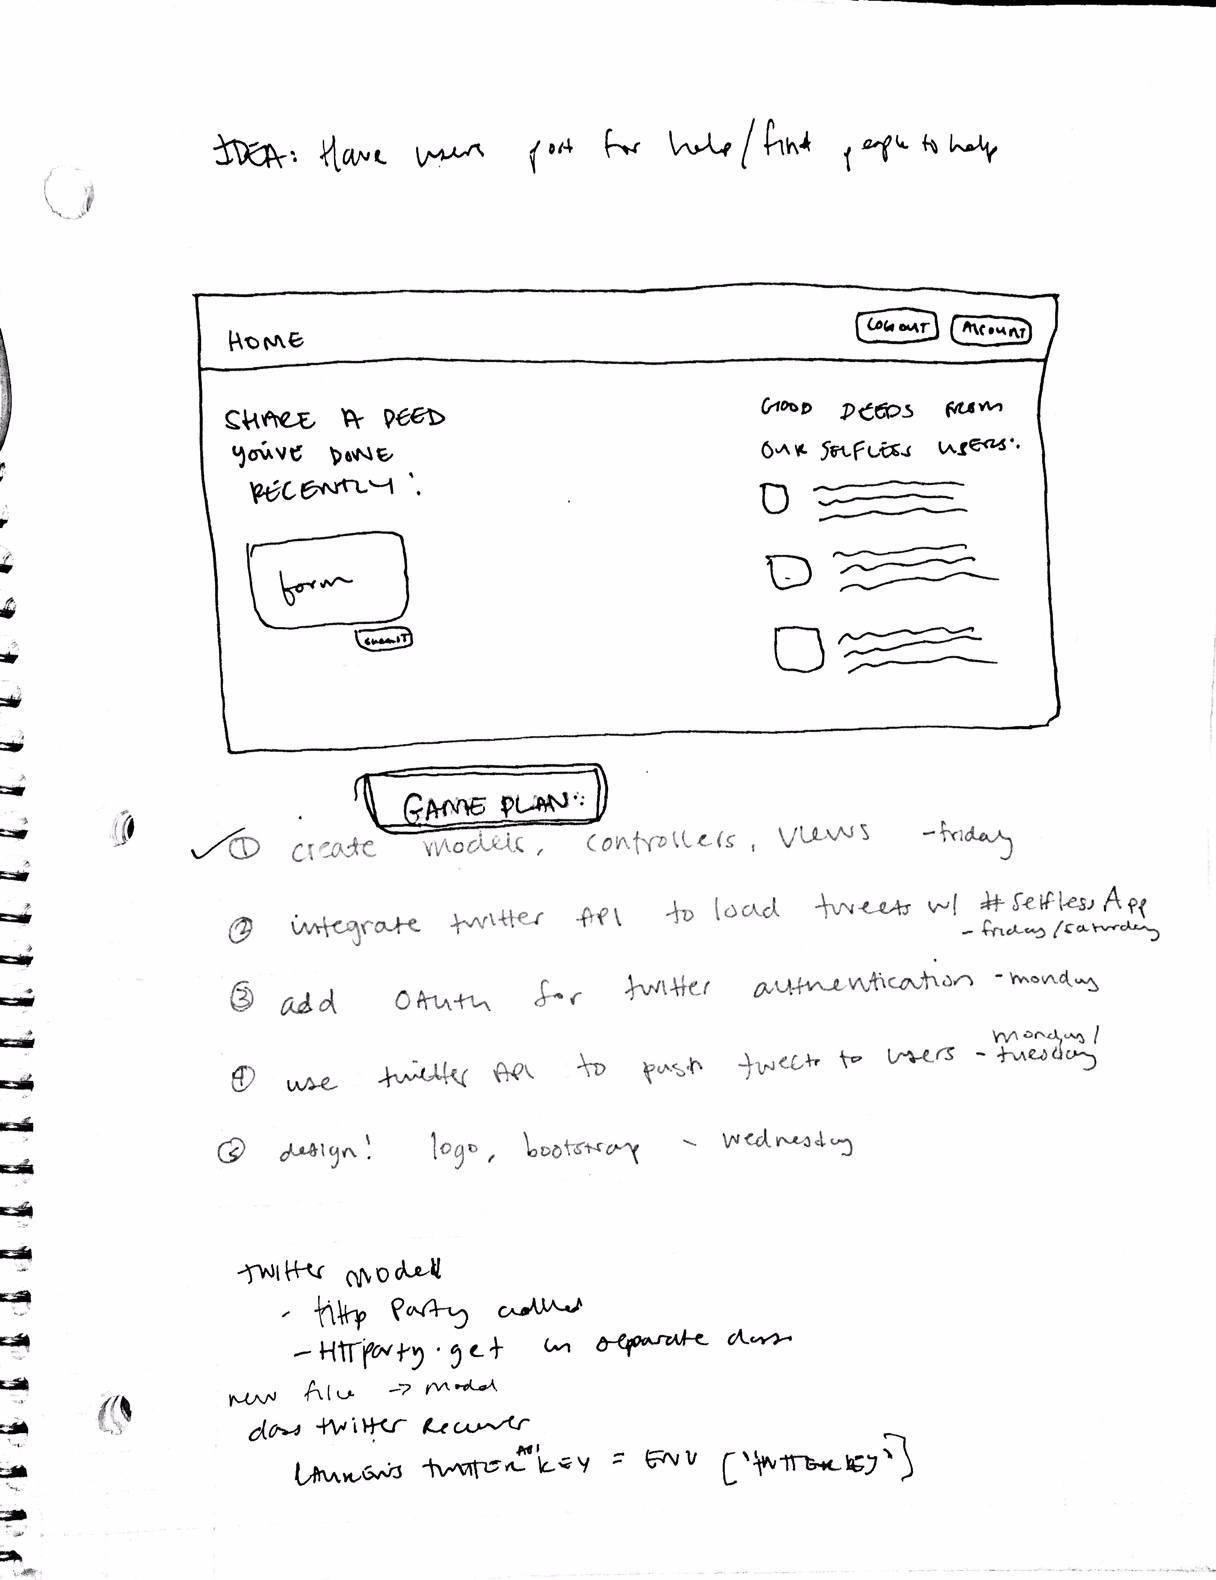 IDEA: Have users post for help/find people to help
HOME
LOGOUT
ACCOUNT
SHARE A DEED
YOU'VE DONE
RECENTLY:
form
SUBMIT
GOOD DEEDS FROM
OUR SELFLESS USERS:
GAME PLAN:
① create models, controllers, views - friday
② integrate twitter API to load tweets w/ #SelflessApp
- friday/saturday
③ add OAuth for twitter authentication - monday
④ use twitter API to push tweets to users - monday/
tuesday
⑤ design! logo, bootstrap - wednesday
twitter model
- Http Party called
- HTTparty.get in separate class
new file -> model
class twitter Receiver
LAUREN'S TWITTER API KEY = ENV ['TWITTER KEY']